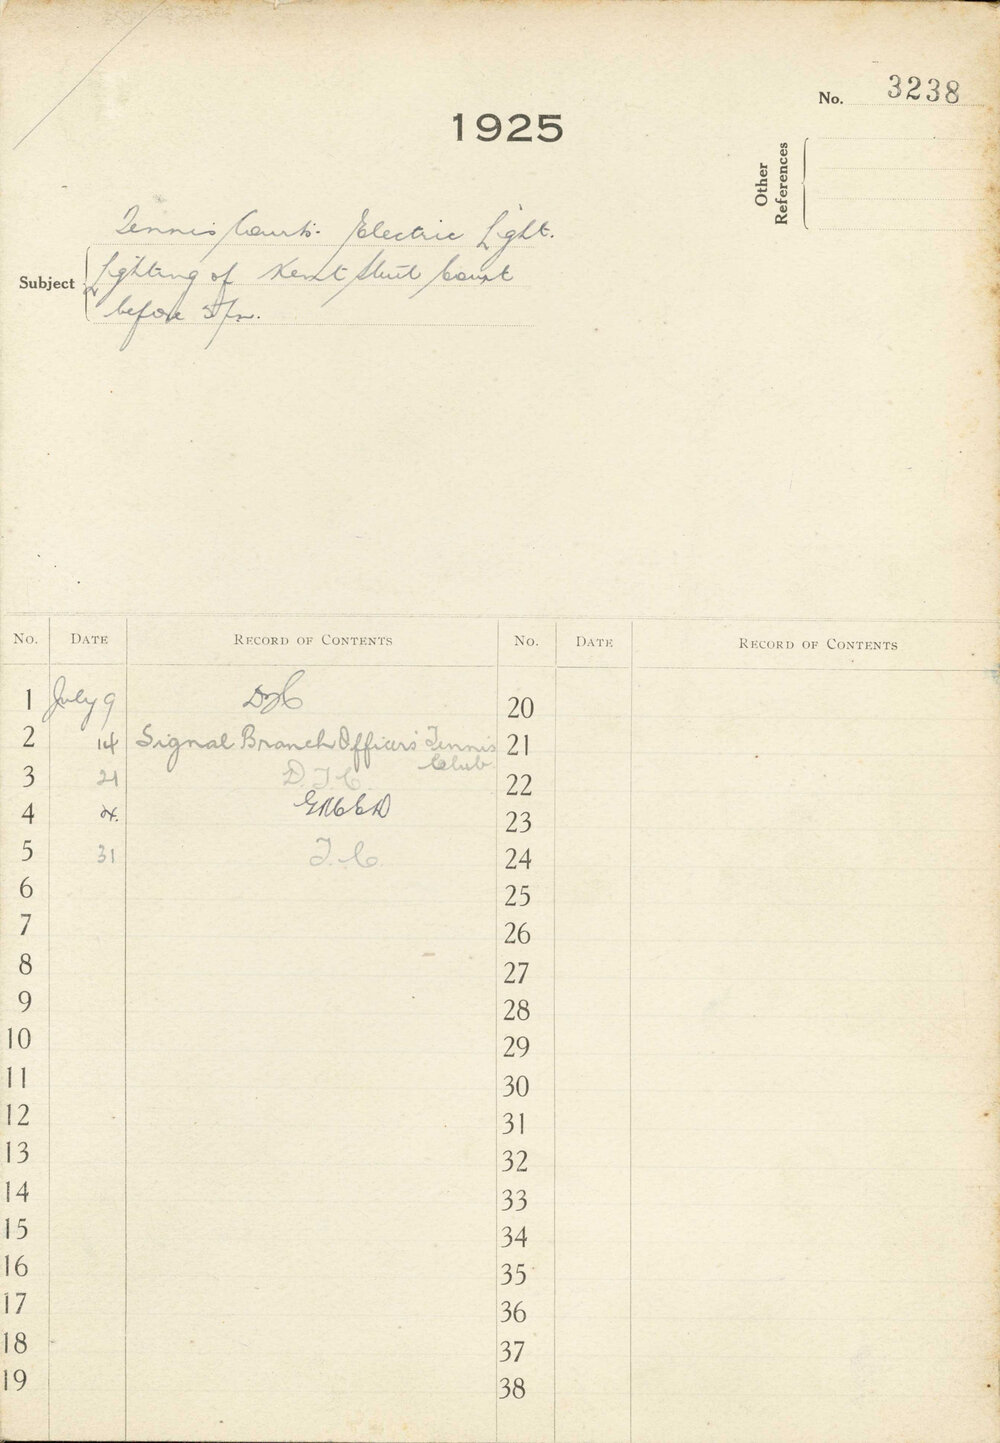 No. 3238
1925
Other
References
Tennis Courts. Electric Light.
Subject
Lighting of Kent Street Court
before
No. DATE RECORD OF CONTENTS No. DATE RECORD OF CONTENTS
1 July 9 20
2 14 Signal Branch Officers' Tennis 21
Club
3 21 D.T.C 22
4 23
5 31 T.C 24
6 25
7 26
8 27
9 28
10 29
11 30
12 31
13 32
14 33
15 34
16 35
17 36
18 37
19 38